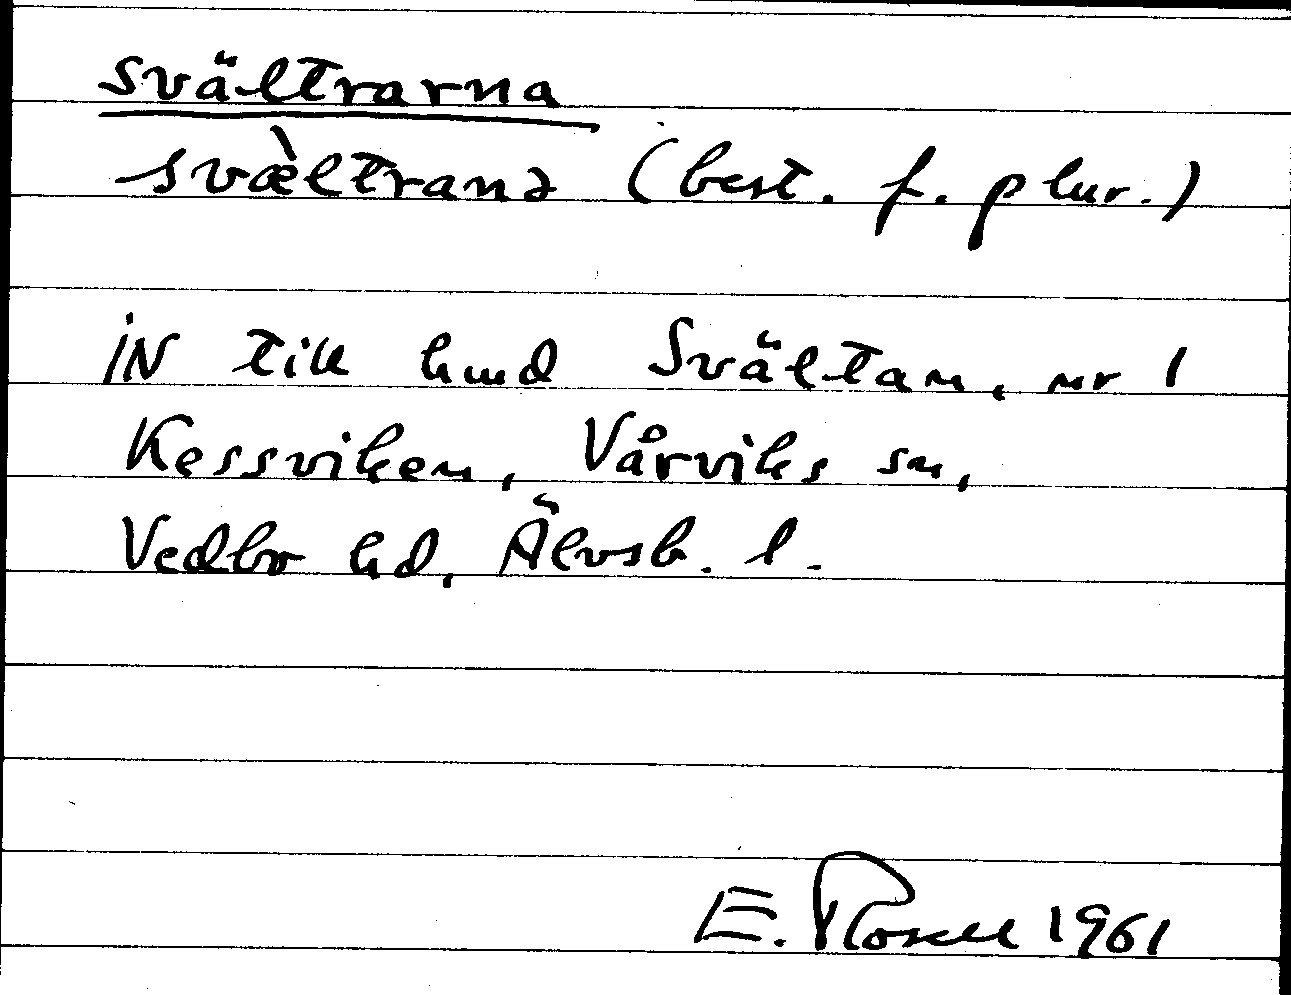 svältrarna
svæ̀ltranə (best. f. plur.)
iN till hmd Svältan, nr 1
Kessviken, Vårviks sn,
Vedbo hd, Älvsb. l.
E. Rosell 1961